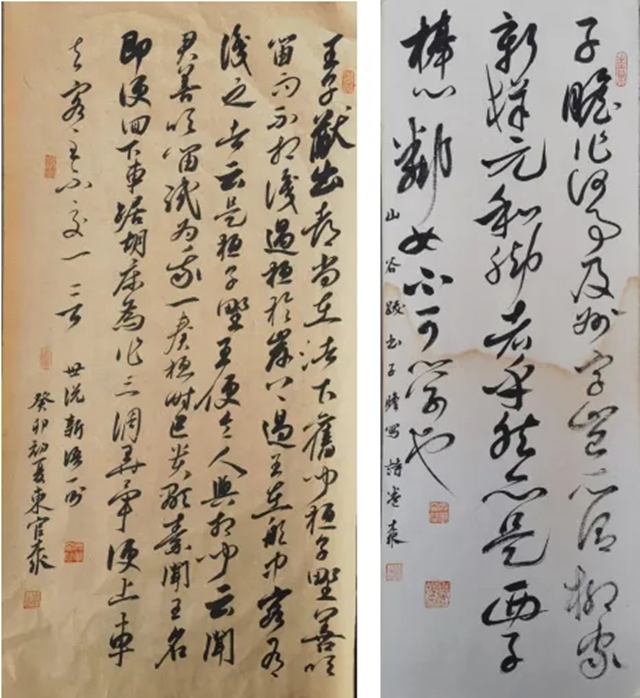 王子猷出都尚在渚下舊聞桓子野善吹
笛而不相識遇桓於岸上過王在船中客有
識之者云是桓子野王便令人與相聞云聞
君善吹笛試為我一奏桓時已貴顯素聞王名
即便回下車踞胡床為作三調弄畢便上車
去客主不交一言
世說新語一則
癸卯初夏東官
子瞻作及妙字豈亦得柳家
新樣元和腳者乎然亦是西子
捧心鄰女不可學也
山谷跋子瞻寫詩卷